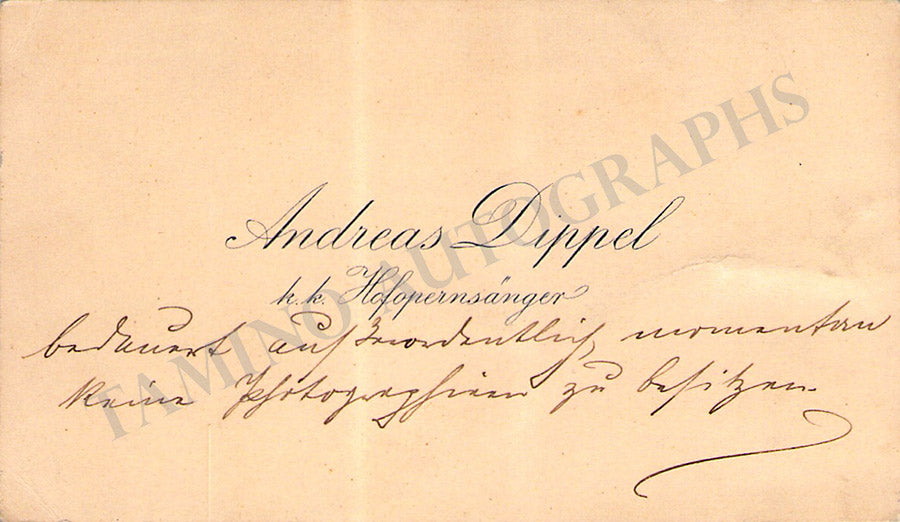 Andreas Dippel
k. k. Hofopernsänger
bedauert außerordentlich, momentan
keine Photographieen zu besitzen.
TAMINO AUTOGRAPHS